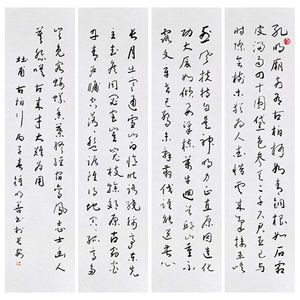 孔明廟前有老柏柯如青銅根如石霜
皮溜雨四十圍黛色參天二千尺君臣已與
時際會樹木猶為人愛惜雲來氣接巫峽
烈風扶持自是神明力正直原因造化
功大廈如傾要梁棟萬牛回首丘山重不
露文章世已驚未辭剪伐誰能送苦心
長月出寒通雪山白憶昨路繞錦亭東先
主武侯同閟宮崔嵬枝幹郊原古窈窕
丹青戶牖空落落盤踞雖得地冥冥孤高多
豈免容螻蟻香葉終經宿鸞鳳志士幽人
莫怨嗟古來材大難為用
杜甫古柏行丙子春鍾明善書於長安